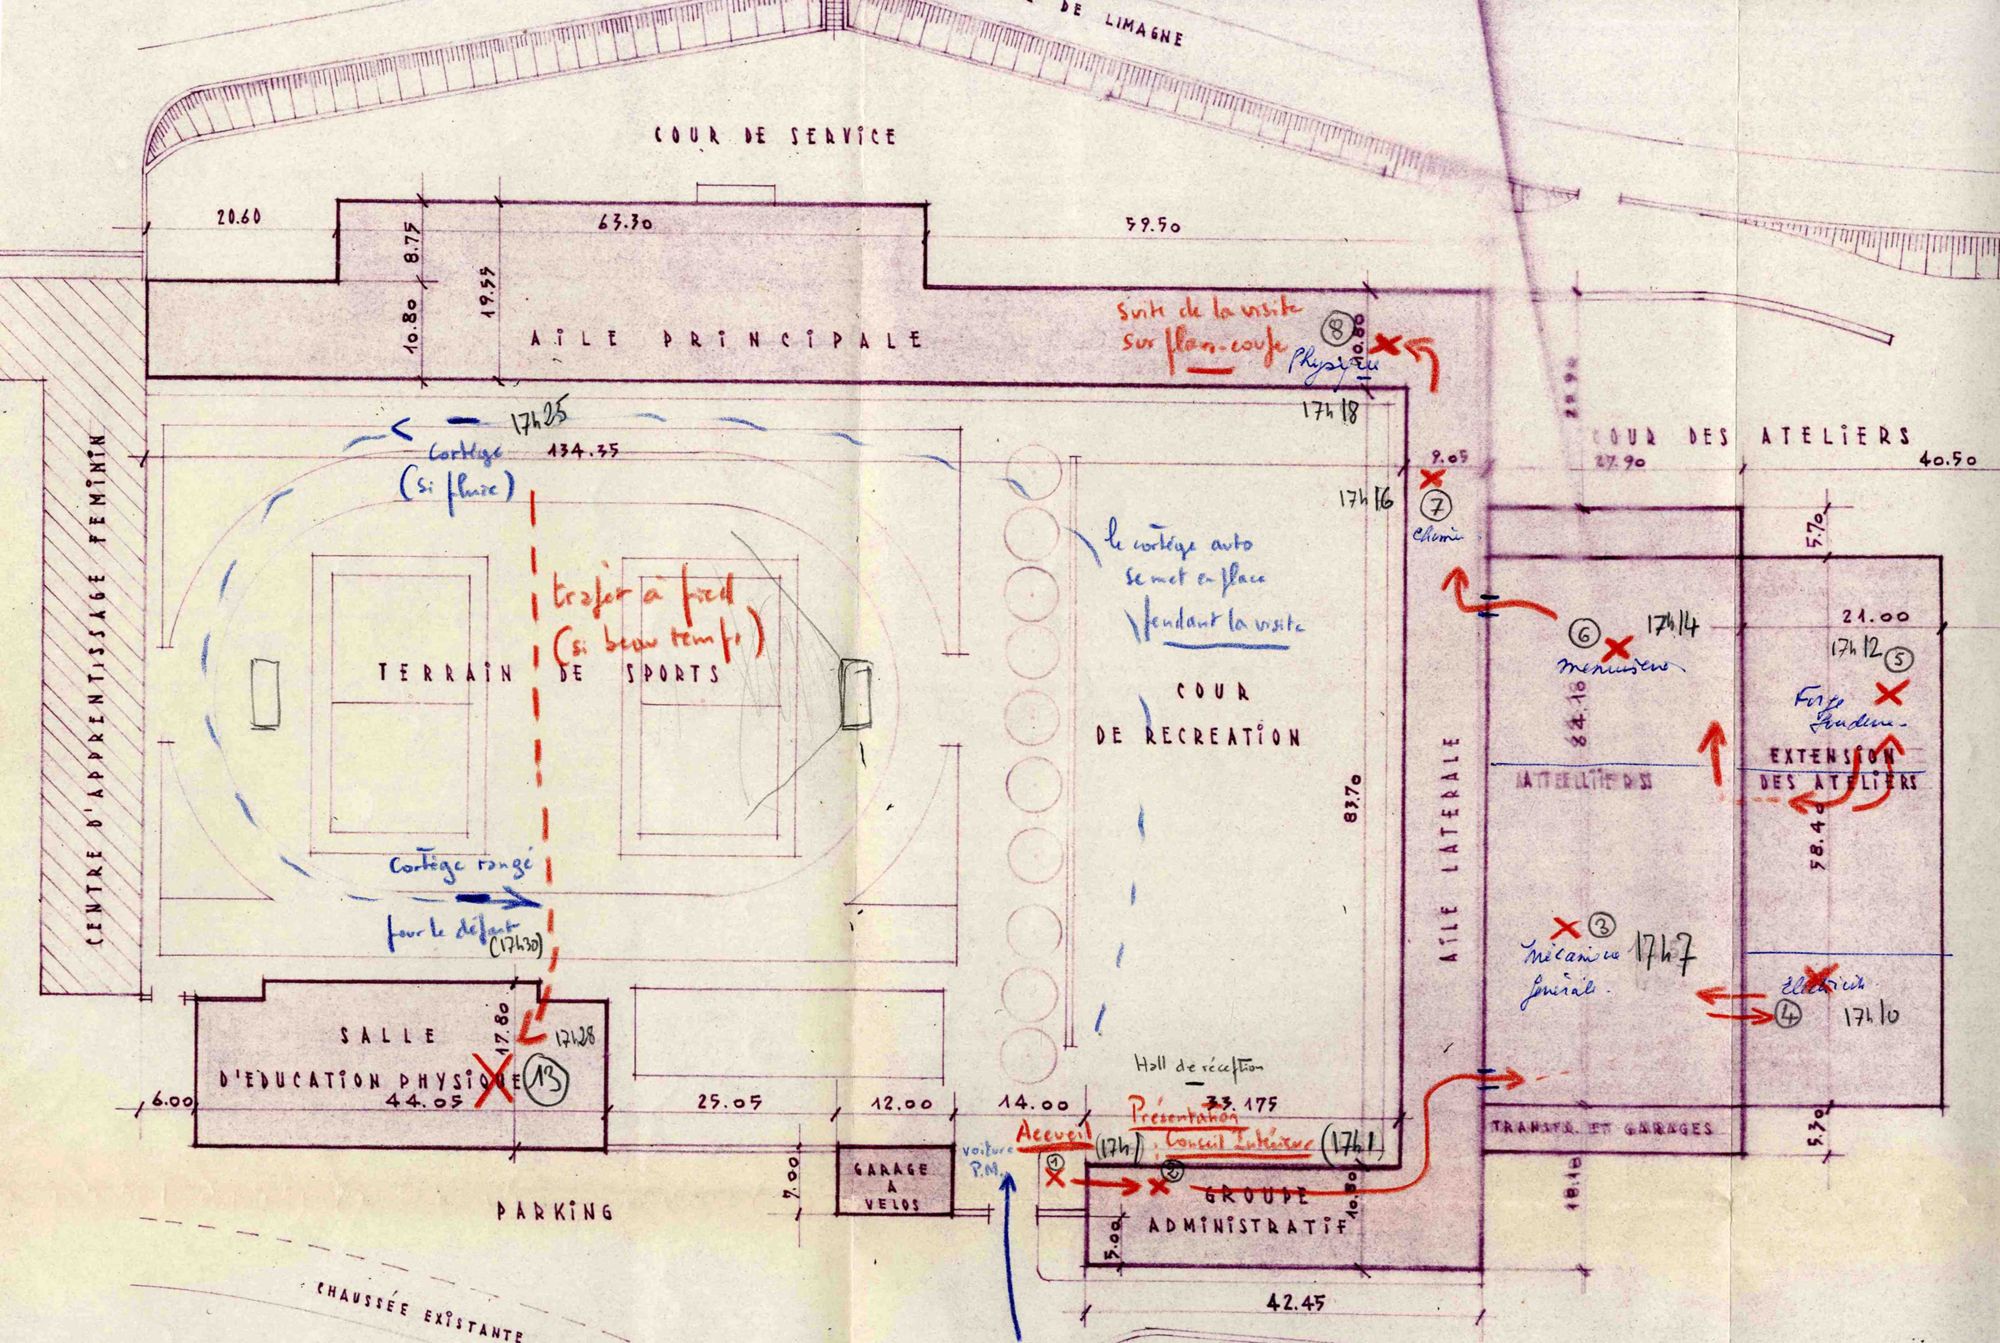 DE LIMAGNE
COUR DE SERVICE
20.60
8.75
63.30
59.50
19.55
10.80
AILE PRINCIPALE
suite de la visite
sur plan-coupe
8
10.80
Physique
17h18
17h25
Cortège
(si pluie)
134.35
9.05
COUR DES ATELIERS
27.90
40.50
17h16
7
Chimie
5.70
CENTRE D'APPRENTISSAGE FEMININ
le cortège auto
se met en place
pendant la visite
trajet à pied
(si beau temps)
TERRAIN DE SPORTS
COUR
DE RECREATION
6
17h14
menuiserie
21.00
17h12
5
Forge
84.10
EXTENSION
DES ATELIERS
ATELIERS
83.70
AILE LATERALE
58.40
Cortège rangé
pour le départ
(17h30)
3
Mécanique
Générale.
17h7
Electricité
4
17h10
SALLE
D'EDUCATION PHYSIQUE
17.80
17h28
13
44.05
6.00
25.05
12.00
14.00
Hall de réception
33.175
Présentation
Conseil Intérieur
(17h1)
Accueil
(17h)
voiture
P.M.
1
2
TRANSFR. ET GARAGES
5.30
GARAGE
A
VELOS
7.00
GROUPE
ADMINISTRATIF
10.80
5.00
18.10
PARKING
42.45
CHAUSSÉE EXISTANTE